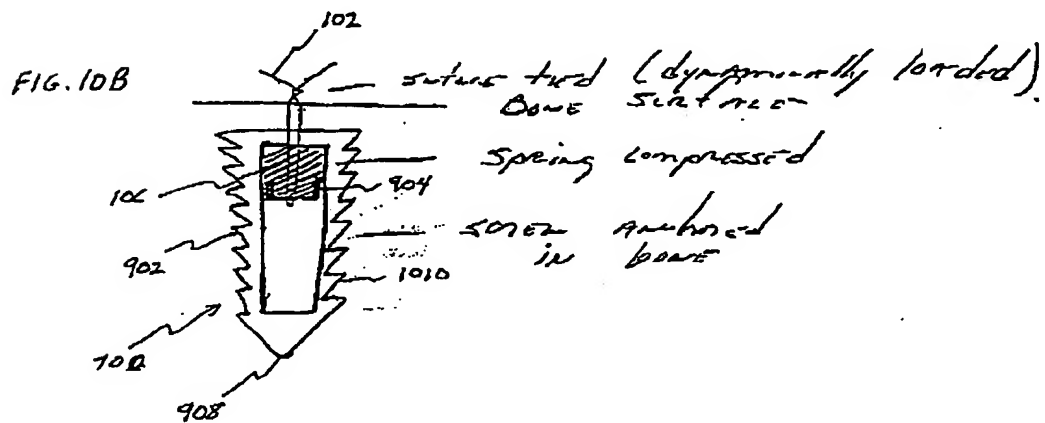 102
FIG. 10B
suture tied (dynamically loaded)
Bone surface
spring compressed
106
904
screw anchored
in bone
902
1010
908